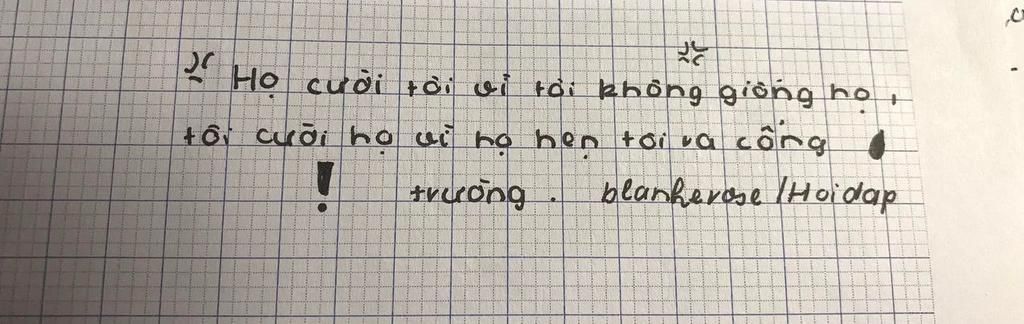 Họ cười tôi vì tôi không giống họ,
tôi cười họ vì họ hẹn tôi va cổng
! trường. blankerose/Hoidap